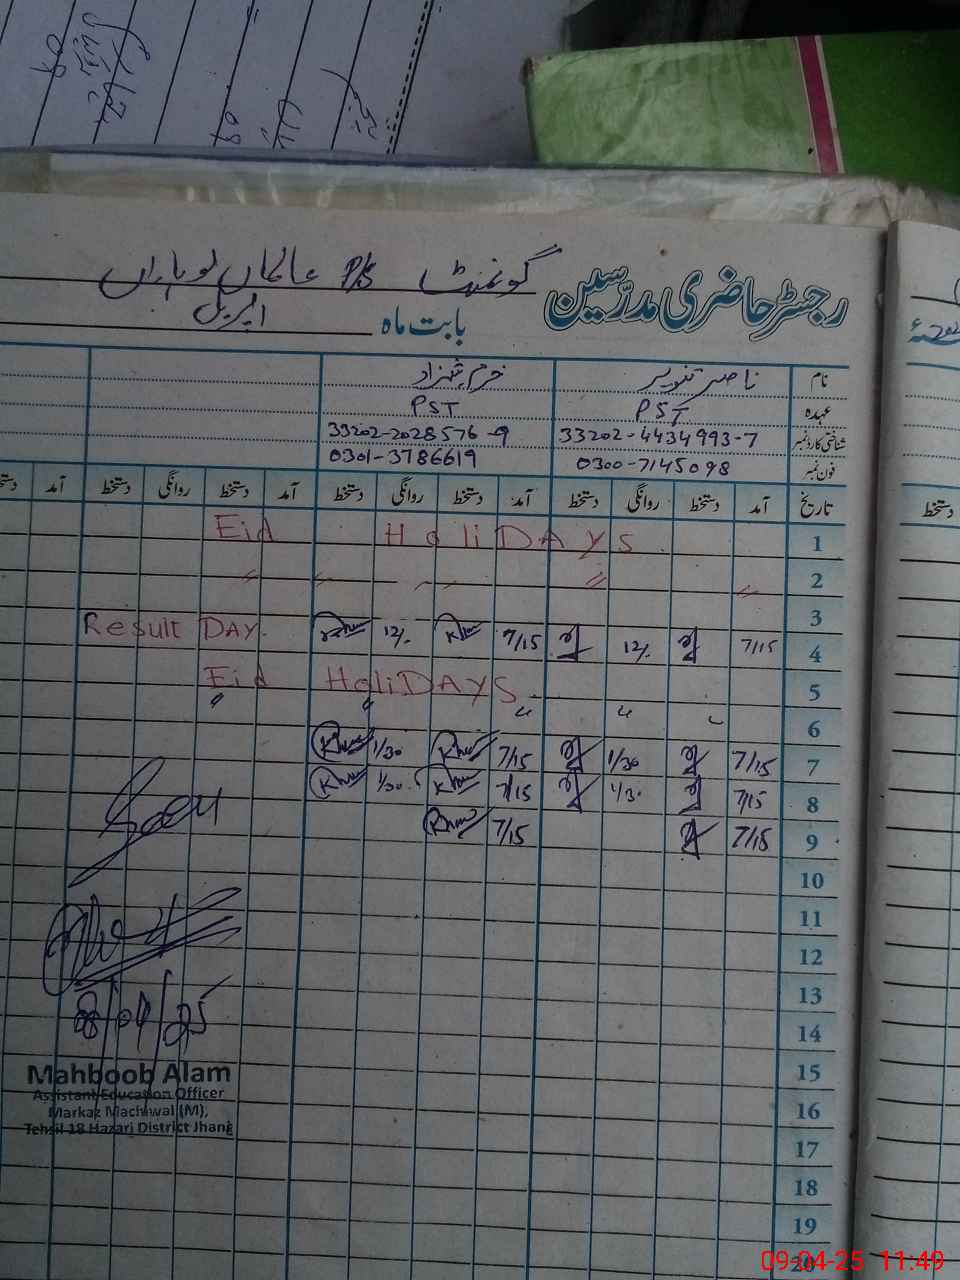 گورنمنٹ P/S
رجسٹر حاضری مدرسین
بابت ماہ اپریل
نام ناصر تنویر خرم شہزاد
عہدہ PST PST
شناختی کارڈ نمبر 33202-4434993-7 33202-2028576-9
فون نمبر 0300-7145098 0301-3786619
تاریخ آمد دستخط روانگی دستخط آمد دستخط روانگی دستخط آمد دستخط روانگی دستخط آمد دستخط
1 Eid HoliDAYS
2 〃 〃 〃 〃 〃
3
4 7/15 12/. 7/15 12/. Result DAY
5 Eid HoliDAYS
6 〃 〃 〃 〃
7 7/15 1/30 7/15 1/30
8 7/15 1/30 7/15 1/30
9 7/15 7/15
10
11
12
13
14
15
16
17
18
19
20
08/04/25
Mahboob Alam
Assistant Education Officer
Markaz Machiwal (M),
Tehsil 18 Hazari District Jhang
دستخط
09-04-25 11:49